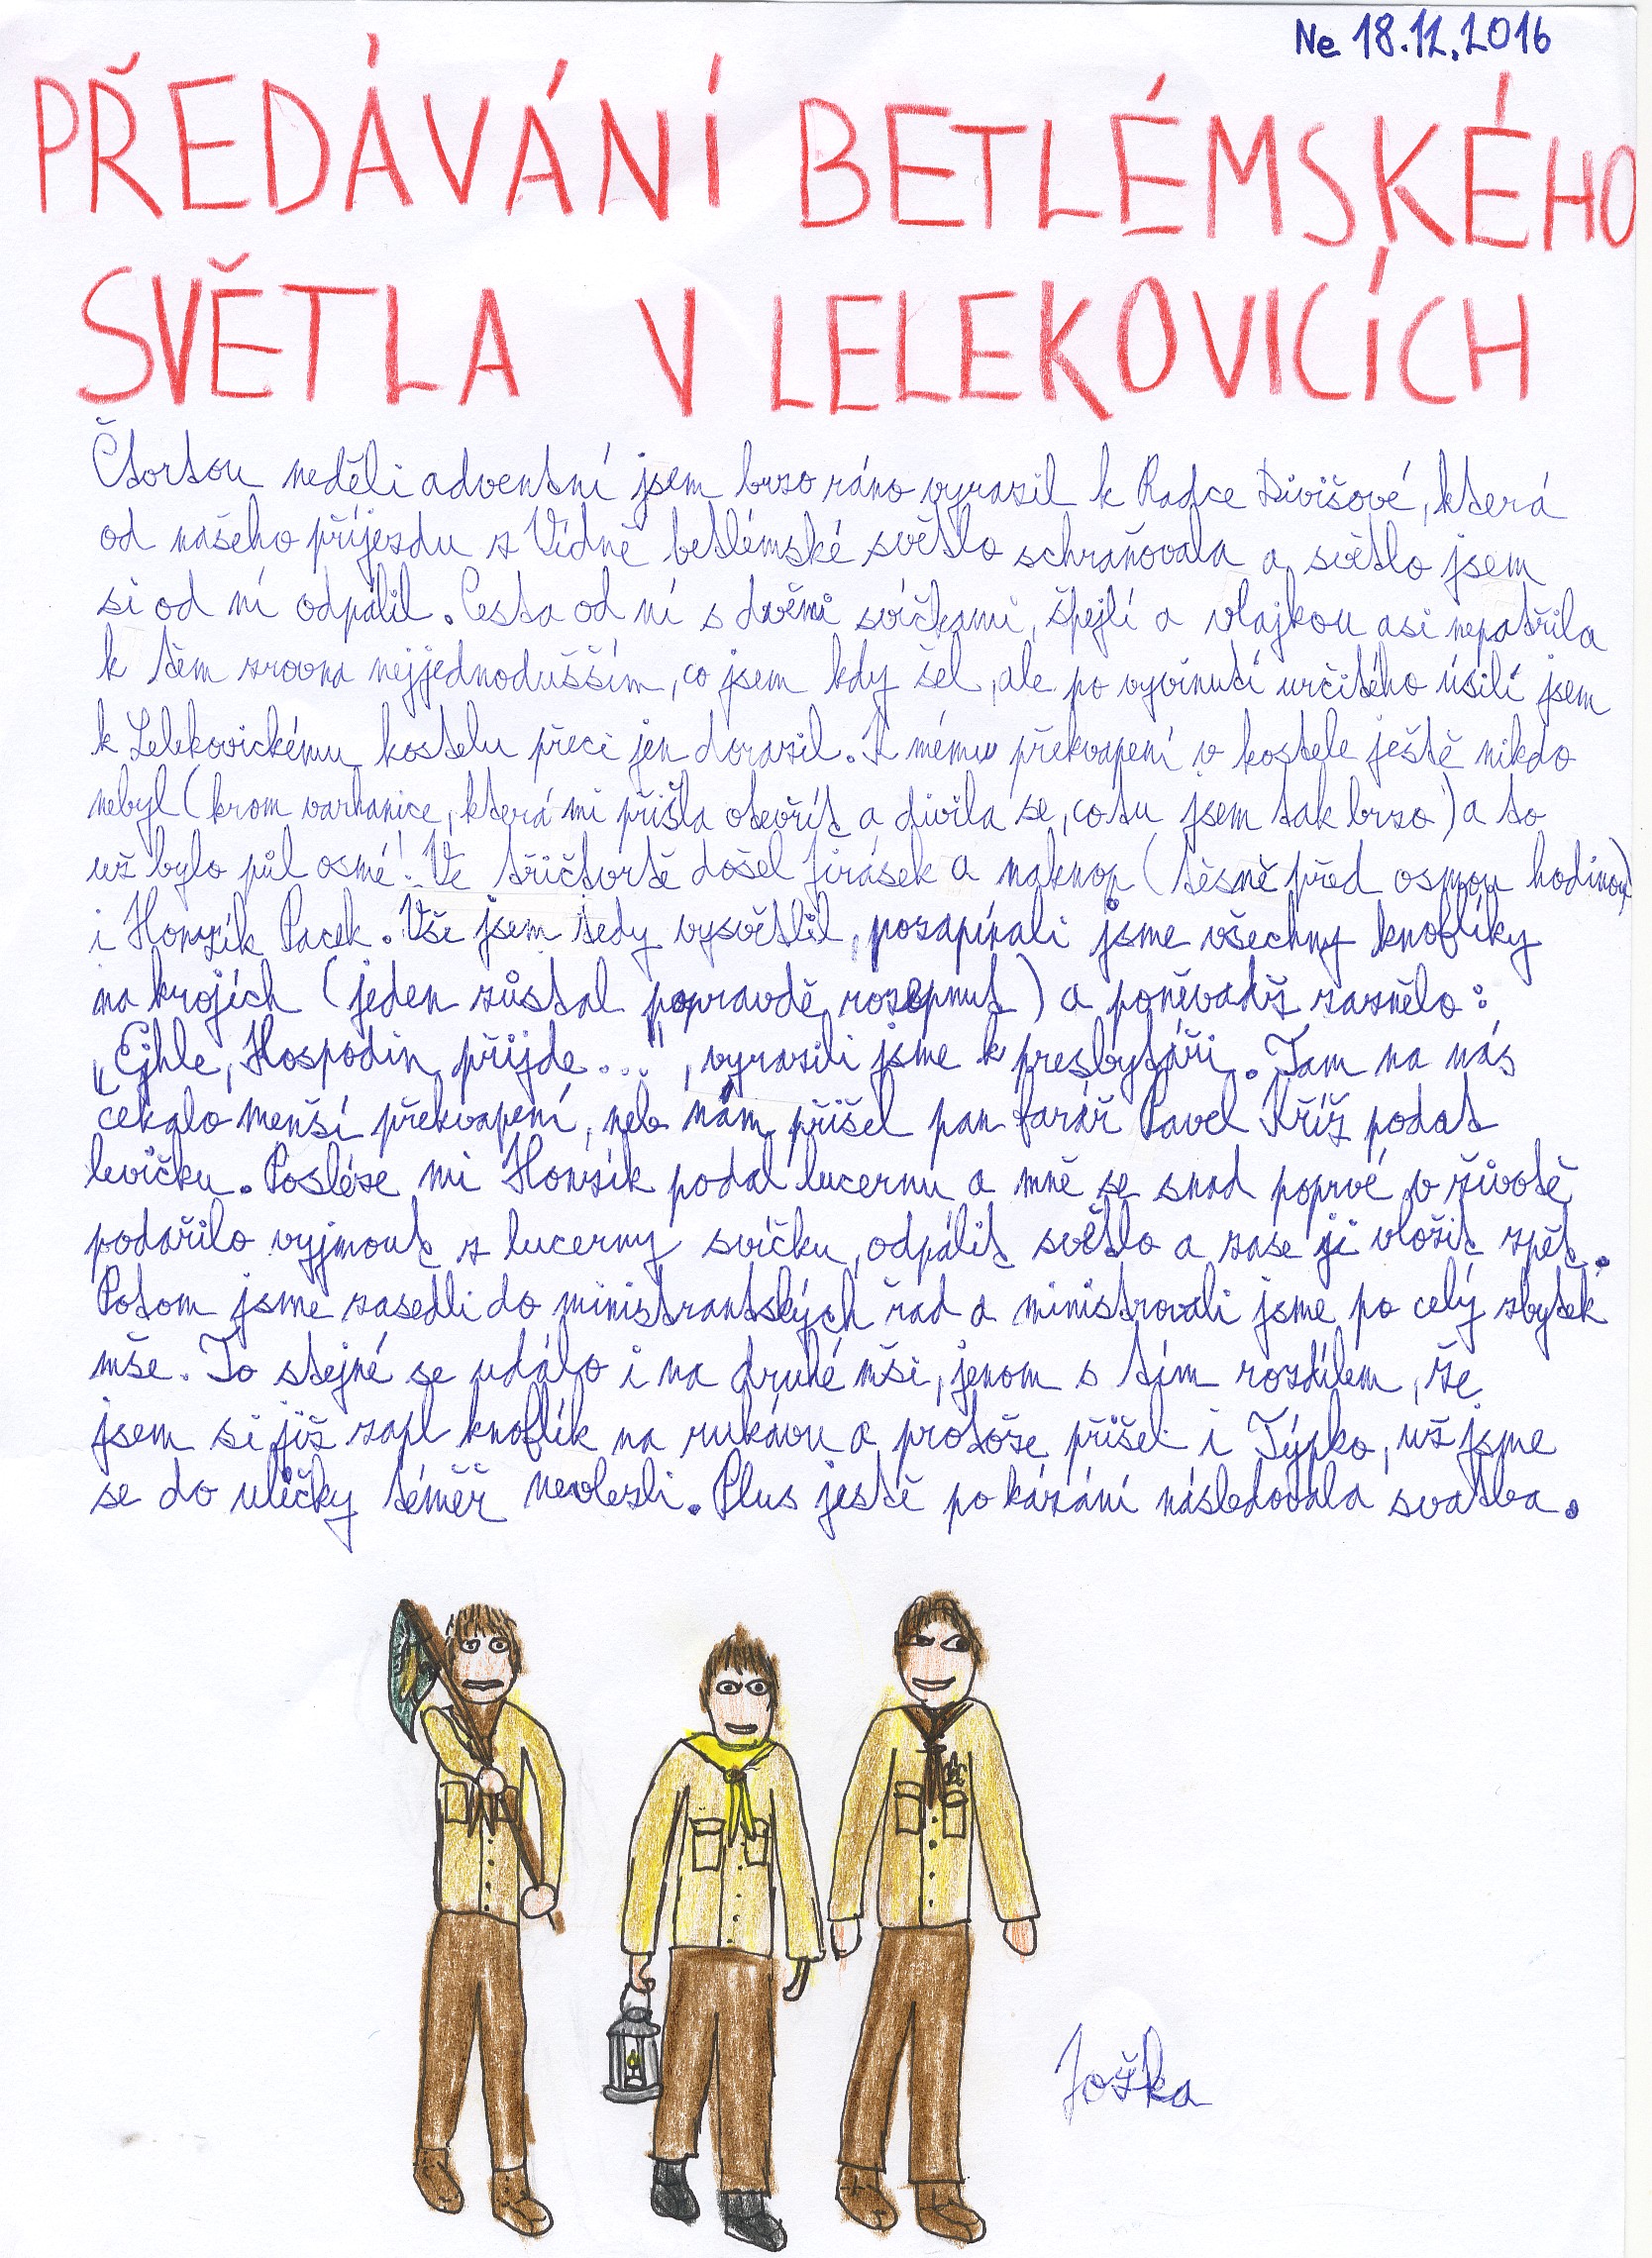 Ne 18.12.2016
PŘEDÁVÁNÍ BETLÉMSKÉHO
SVĚTLA V LELEKOVICÍCH
Čtvrtou neděli adventní jsem brzo ráno vyrazil k Radce Divišové, která
od našeho příjezdu z Vídně betlémské světlo schraňovala a světlo jsem
si od ní odpálil. Cesta od ní s dvěmi svíčkami, špejlí a vlajkou asi nepatřila
k těm zrovna nejjednodušším, co jsem kdy šel, ale po vyvinutí určitého úsilí jsem
k Lelekovickému kostelu přeci jen dorazil. K mému překvapení v kostele ještě nikdo
nebyl (krom varhanice, která mi přišla otevřít a divila se, co tu jsem tak brzo) a to
už bylo půl osmé! Ve tříčtvrtě došel Jirásek a nakonop (těsně před osmou hodinou)
i Honzík Pacek. Vše jsem tedy vysvětlil, pozapínali jsme všechny knoflíky
na krojích (jeden zůstal popravdě rozepnut) a poněvadž zaznělo:
„Ejhle, Hospodin přijde...", vyrazili jsme k presbytáři. Tam na nás
čekalo menší překvapení, neb nám přišel pan farář Pavel Kříž podat
levičku. Posléze mi Honzík podal lucernu a mně se snad poprvé v životě
podařilo vyjmout z lucerny svíčku, odpálit světlo a zase ji vložit zpět.
Potom jsme zasedli do ministrantských řad a ministrovali jsme po celý zbytek
mše. To stejné se událo i na druhé mši, jenom s tím rozdílem, že
jsem si již zapl knoflík na rukávu a protože přišel i Týpko, už jsme
se do uličky téměř nevlezli. Plus ještě po kázání následovala svatba.
Joška